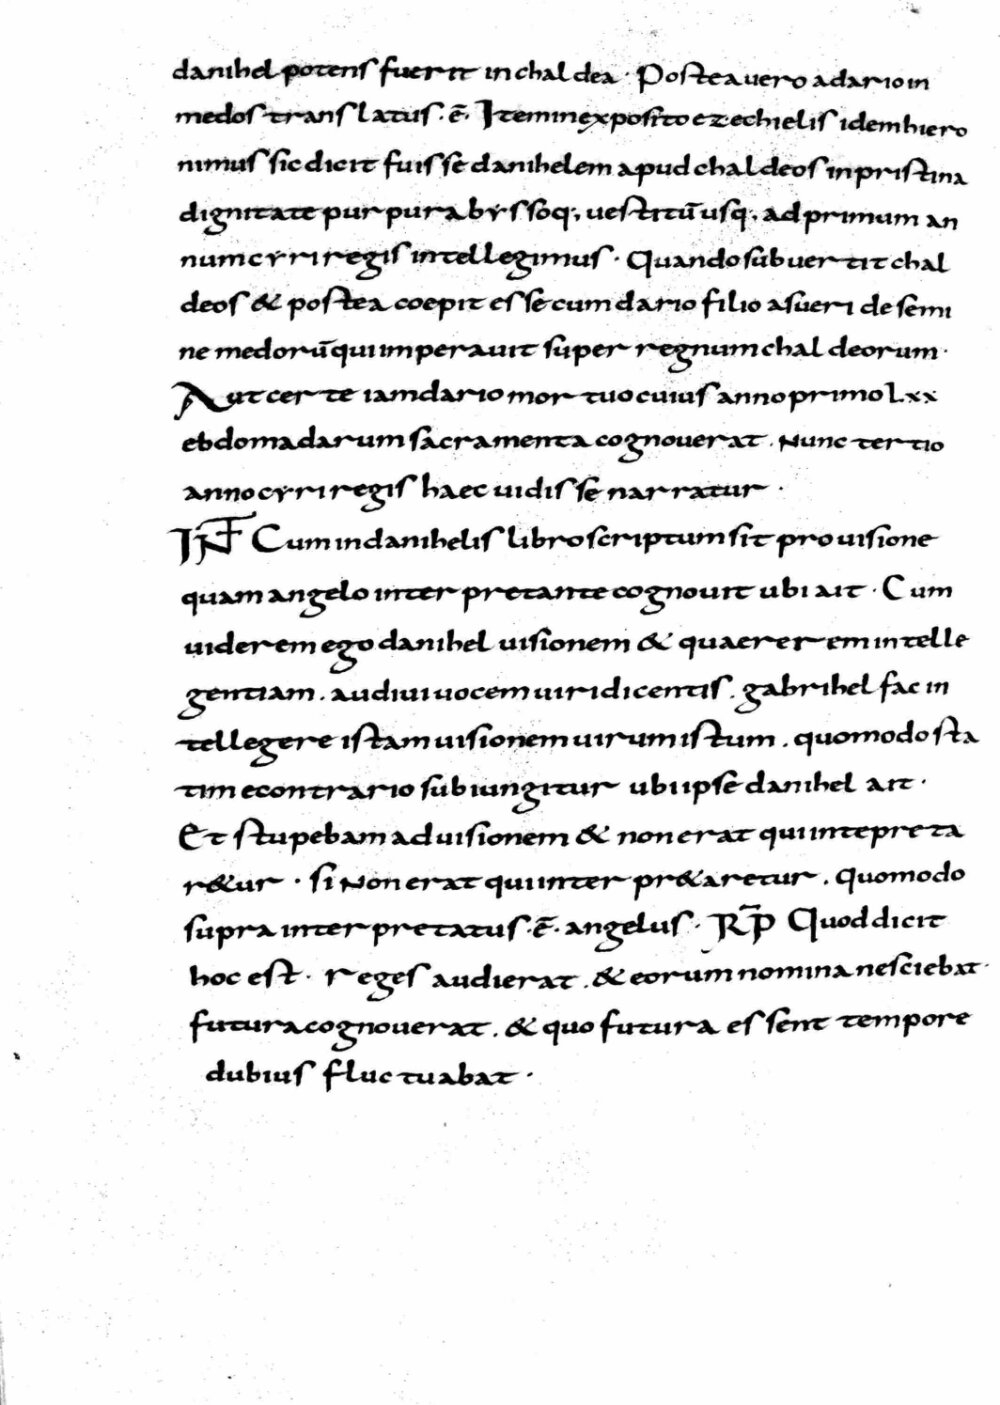 danihel potens fuerit in chaldea · Postea vero a dario in
medos translatus · ē · Item in exposito ezechielis idem hiero
nimus sic dicit fuisse danihelem apud chaldeos in pristina
dignitate purpura byssoq; vestitū usq; ad primum an
num cyri regis intellegimus · Quando subvertit chal
deos & postea coepit esse cum dario filio asueri de semi
ne medorū qui imperavit super regnum chaldeorum ·
Aut certe iam dario mortuo cuius anno primo Lxx
ebdomadarum sacramenta cognoverat . Nunc tertio
anno cyri regis haec vidisse narratur ·
INT Cum in danihelis libro scriptum sit pro visione
quam angelo interpretante cognovit ubi ait · Cum
viderem ego danihel visionem & quaererem intelle
gentiam . audivi vocem viri dicentis . gabrihel fac in
tellegere istam visionem virum istum . quomodo sta
tim econtrario subiungitur ubi ipse danihel ait ·
Et stupebam ad visionem & non erat qui intepreta
r&ur · si Non erat qui interpr&aretur . quomodo
supra interpretatus · ē · angelus · R̄P Quod dicit
hoc est · reges audierat . & eorum nomina nesciebat ·
futura cognoverat . & quo futura essent tempore
dubius fluctuabat ·